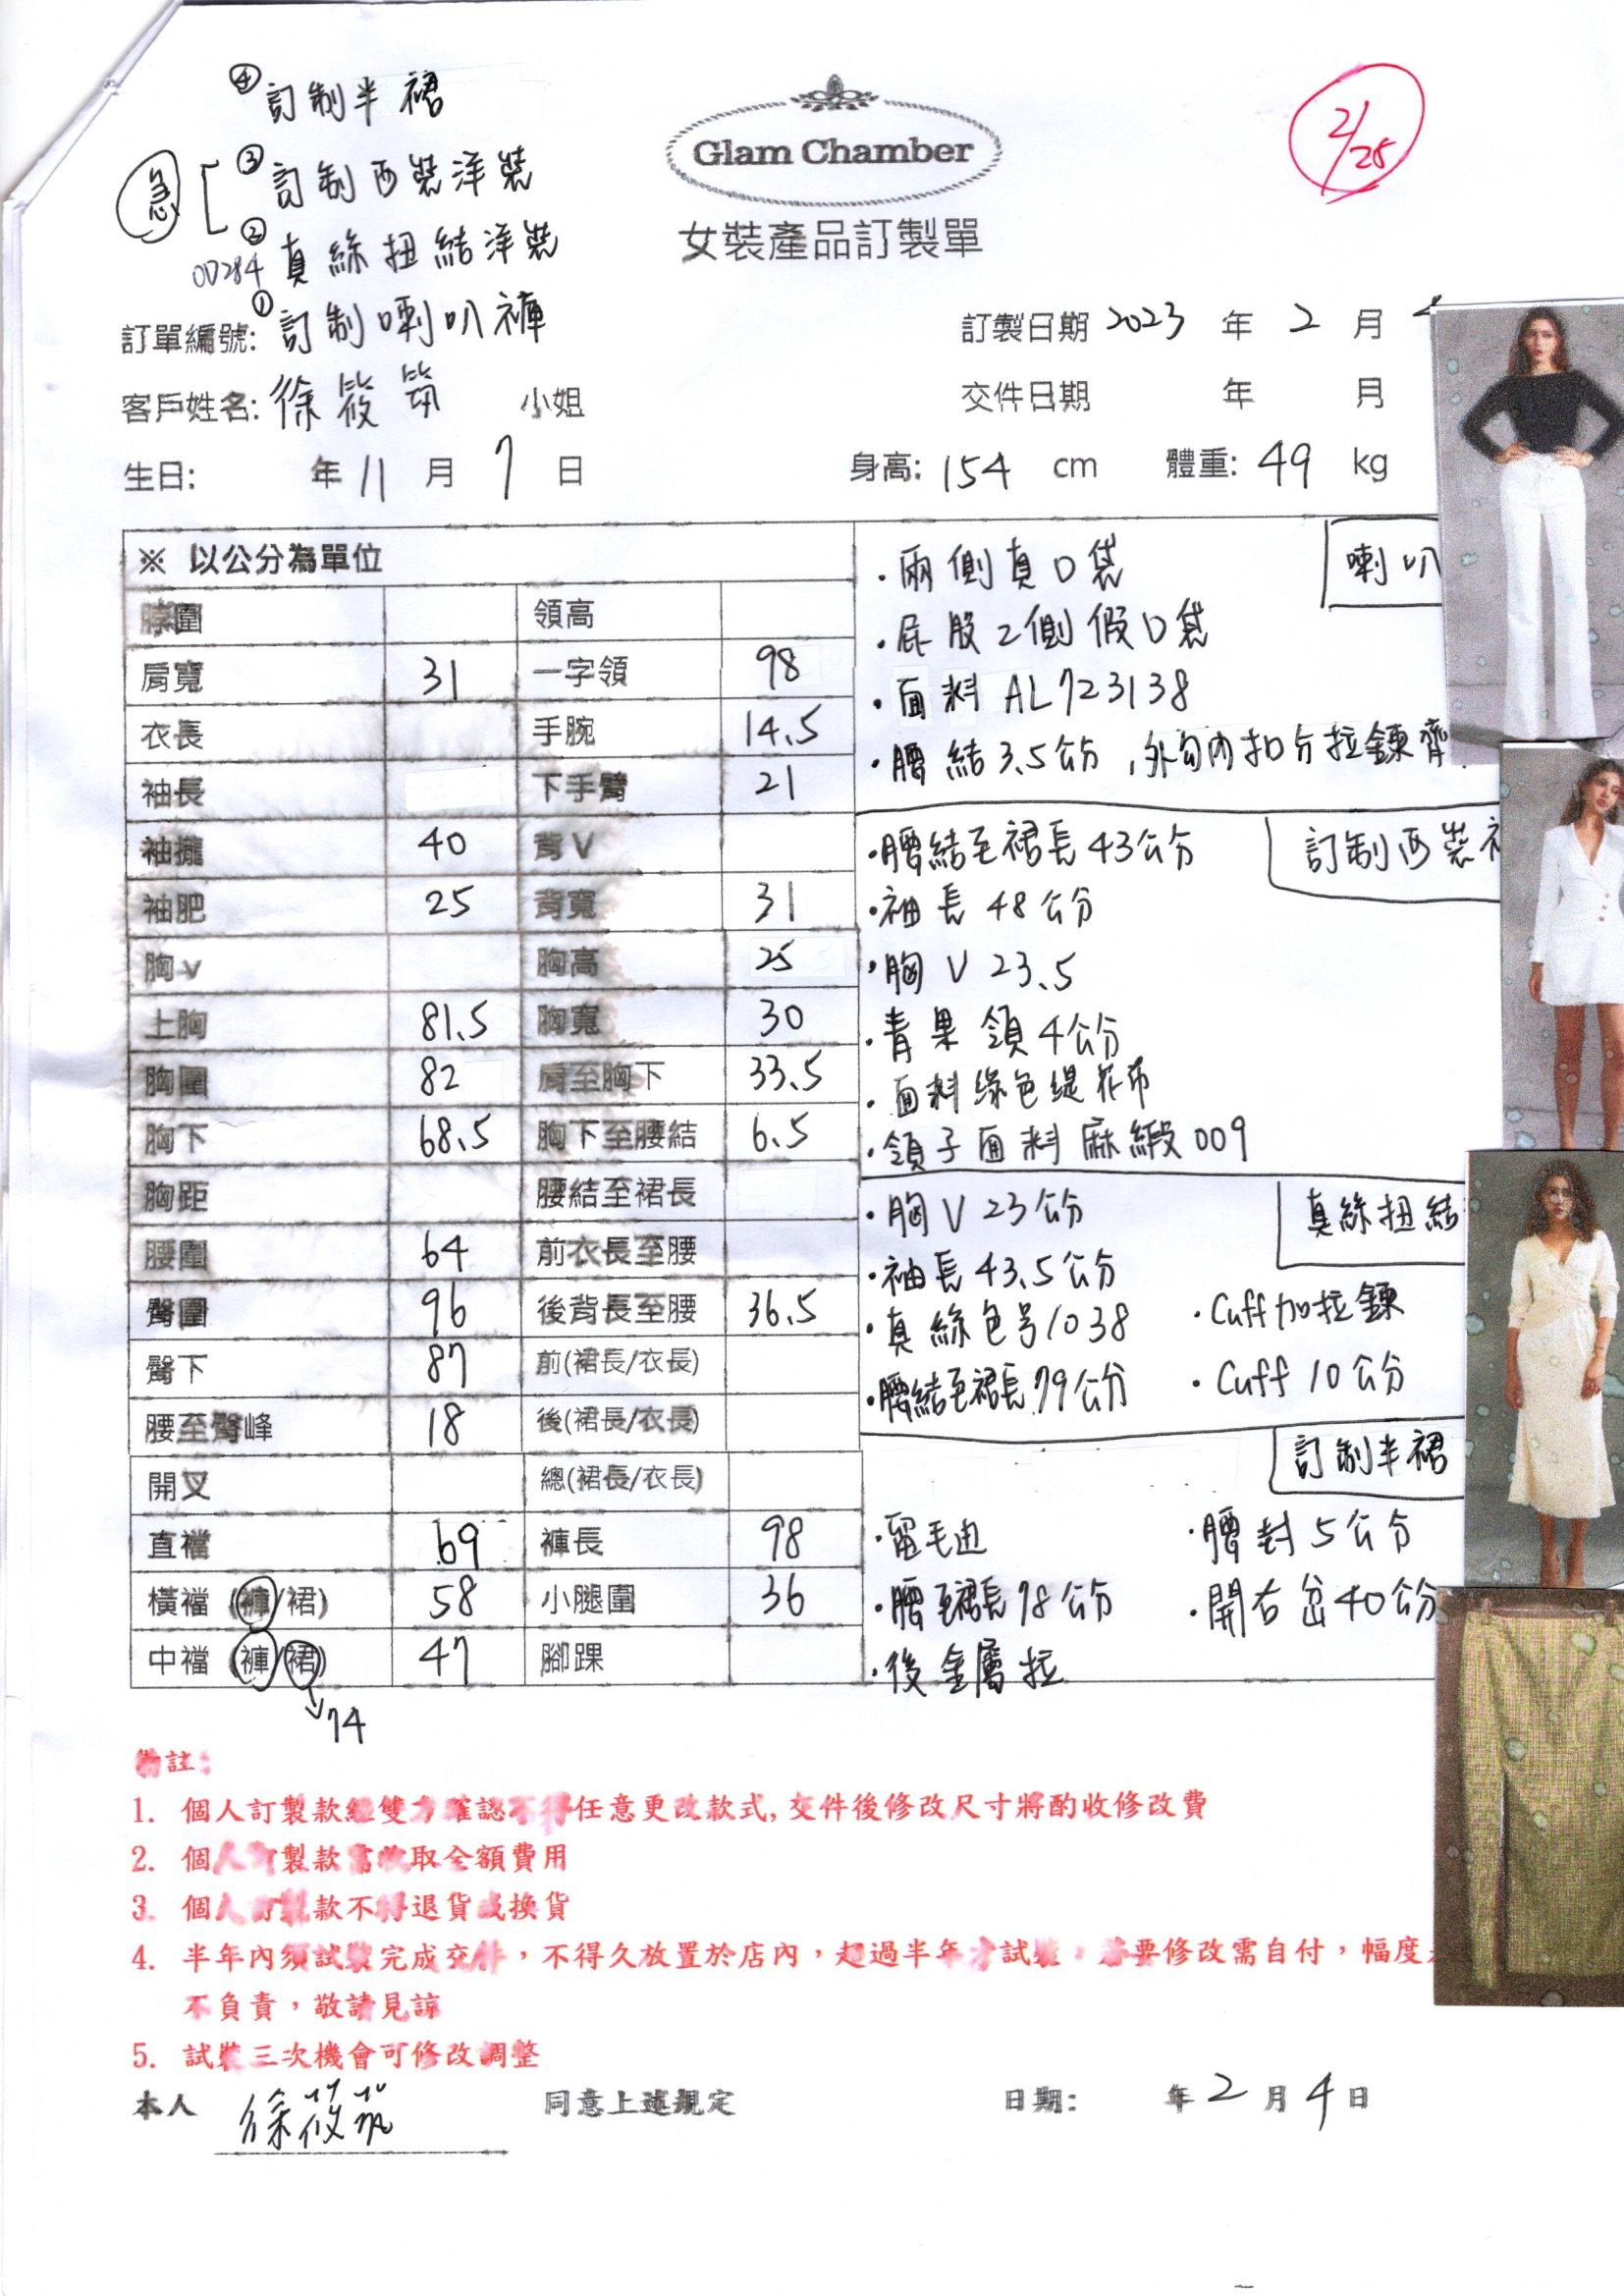 ④ 訂制半裙
急 ③ 訂制西裝洋裝
② 真絲扭結洋裝
OD284
Glam Chamber
女裝產品訂製單
2/25
訂單編號: ① 訂制喇叭褲
訂製日期 2023 年 2 月
客戶姓名: 徐筱筑 小姐
交件日期 年 月
生日: 年 11 月 7 日
身高: 154 cm 體重: 49 kg
※ 以公分為單位
脖圍 領高
肩寬 31 一字領 98
衣長 手腕 14.5
袖長 下手臂 21
袖攏 40 背V
袖肥 25 背寬 31
胸V 胸高 25
上胸 81.5 胸寬 30
胸圍 82 肩至胸下 33.5
胸下 68.5 胸下至腰結 6.5
胸距 腰結至裙長
腰圍 64 前衣長至腰
臀圍 96 後背長至腰 36.5
臀下 87 前(裙長/衣長)
腰至臀峰 18 後(裙長/衣長)
開叉 總(裙長/衣長)
直襠 69 褲長 98
橫襠 (褲/裙) 58 小腿圍 36
中襠 (褲/裙) 47 腳踝
→74
喇叭
・兩側真口袋
・屁股2側假口袋
・面料 AL723138
・腰結3.5公分,外勾內扣分拉鍊齊
訂制西裝
・腰結至裙長43公分
・袖長 48公分
・胸V 23.5
・青果領4公分
・面料綠色緹花布
・領子面料麻緞009
真絲扭結
・胸V 23公分
・袖長43.5公分
・真絲色号1038
・Cuff加拉鍊
・腰結至裙長79公分
・Cuff 10公分
訂制半裙
・留毛边
・腰封5公分
・腰至裙長78公分
・開右岔40公分
・後金屬拉
備註:
1. 個人訂製款經雙方確認不得任意更改款式,交件後修改尺寸將酌收修改費
2. 個人訂製款需收取全額費用
3. 個人訂製款不得退貨或換貨
4. 半年內須試裝完成交件，不得久放置於店內，超過半年才試裝，若要修改需自付，幅度
不負責，敬請見諒
5. 試裝三次機會可修改調整
本人 徐筱筑 同意上述規定 日期: 年 2 月 4 日